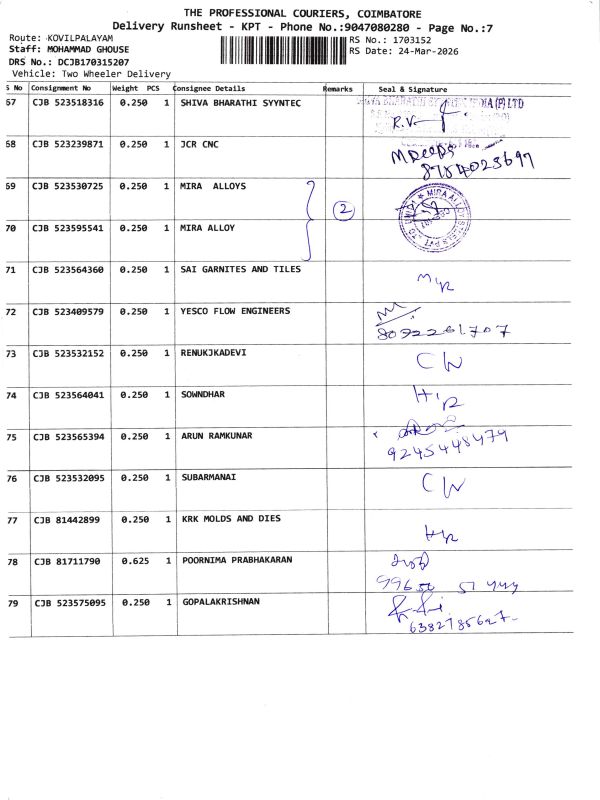 THE PROFESSIONAL COURIERS, COIMBATORE
Delivery Runsheet - KPT - Phone No.:9047080280 - Page No.:7
Route: KOVILPALAYAM
RS No.: 1703152
Staff: MOHAMMAD GHOUSE
RS Date: 24-Mar-2026
DRS No.: DCJB170315207
Vehicle: Two Wheeler Delivery
S No Consignment No Weight PCS Consignee Details Remarks Seal & Signature
67 CJB 523518316 0.250 1 SHIVA BHARATHI SYYNTEC
R.V
68 CJB 523239871 0.250 1 JCR CNC
69 CJB 523530725 0.250 1 MIRA ALLOYS
2
70 CJB 523595541 0.250 1 MIRA ALLOY
71 CJB 523564360 0.250 1 SAI GARNITES AND TILES
72 CJB 523409579 0.250 1 YESCO FLOW ENGINEERS
73 CJB 523532152 0.250 1 RENUKJKADEVI CW
74 CJB 523564041 0.250 1 SOWNDHAR
75 CJB 523565394 0.250 1 ARUN RAMKUNAR
9245448479
76 CJB 523532095 0.250 1 SUBARMANAI CW
77 CJB 81442899 0.250 1 KRK MOLDS AND DIES
78 CJB 81711790 0.625 1 POORNIMA PRABHAKARAN
79 CJB 523575095 0.250 1 GOPALAKRISHNAN